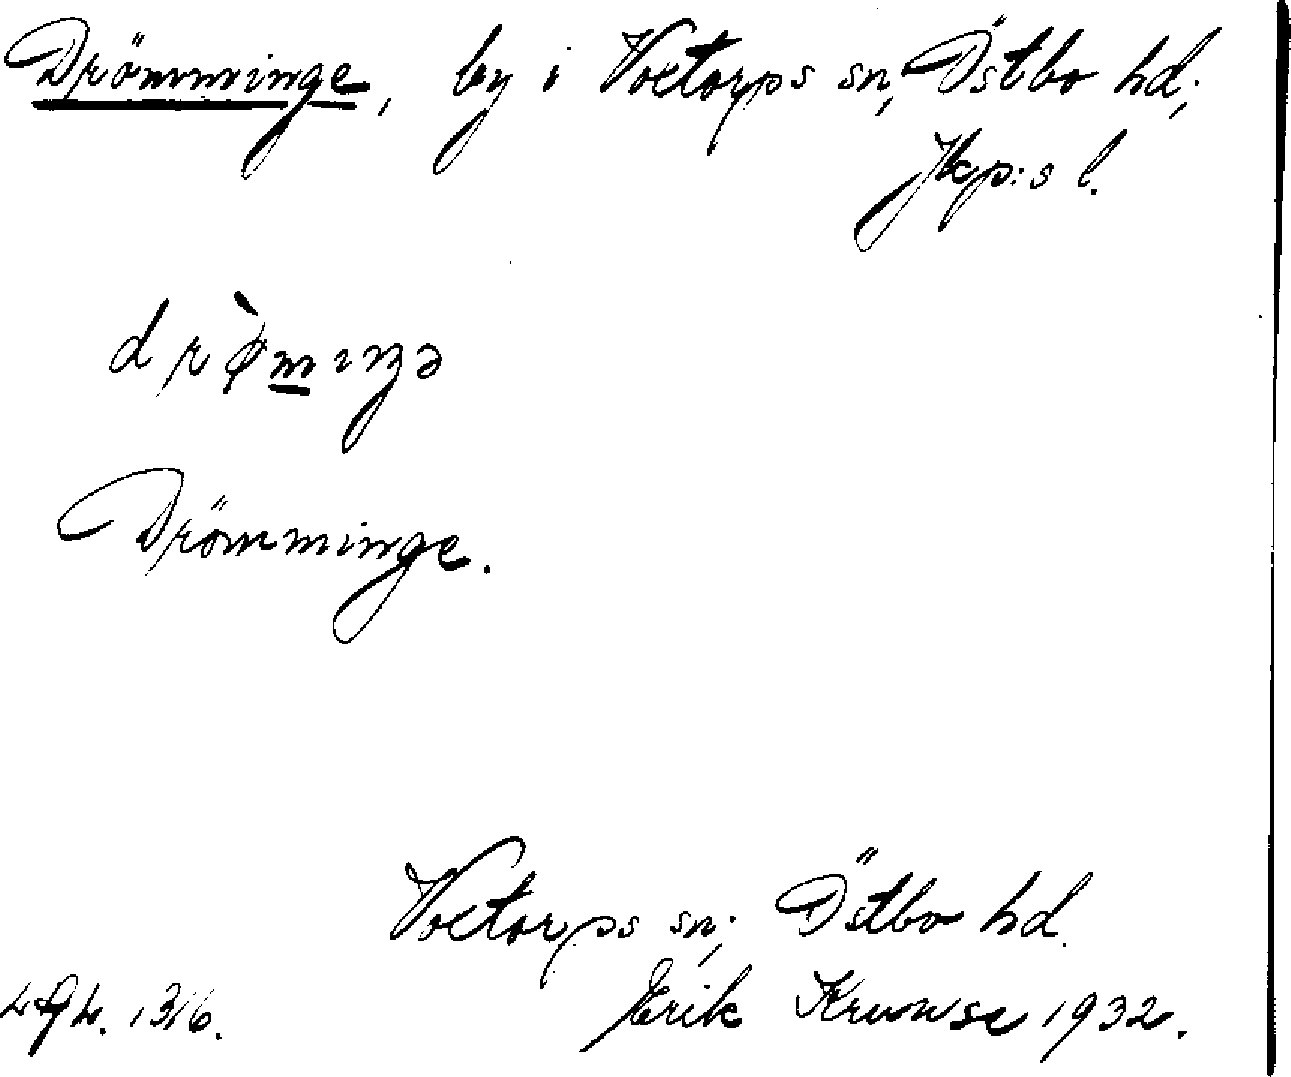 Drömminge, by i Voxtorps sn, Östbo hd;
Jkp:s l.
drø̀mıŋə
Drömminge.
Voxtorps sn; Östbo hd.
Erik Kruuse 1932.